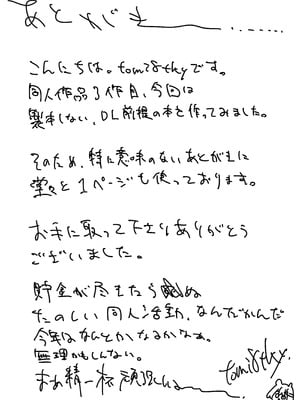 あとがき
こんにちは。tomi8thyです。
同人作品3作目、今回は
製本しない、DL前提の本を作ってみました。
そのため、特に意味のないあとがきに
堂々と1ページも使っております。
お手に取って下さりありがとう
ございました。
貯金が尽きたら死ぬ
たのしい同人活動、なんだかんだ
今年はなんとかなるかなぁ。
無理かもしんない。
まあ精一杯頑張しょー
tomi8thy.